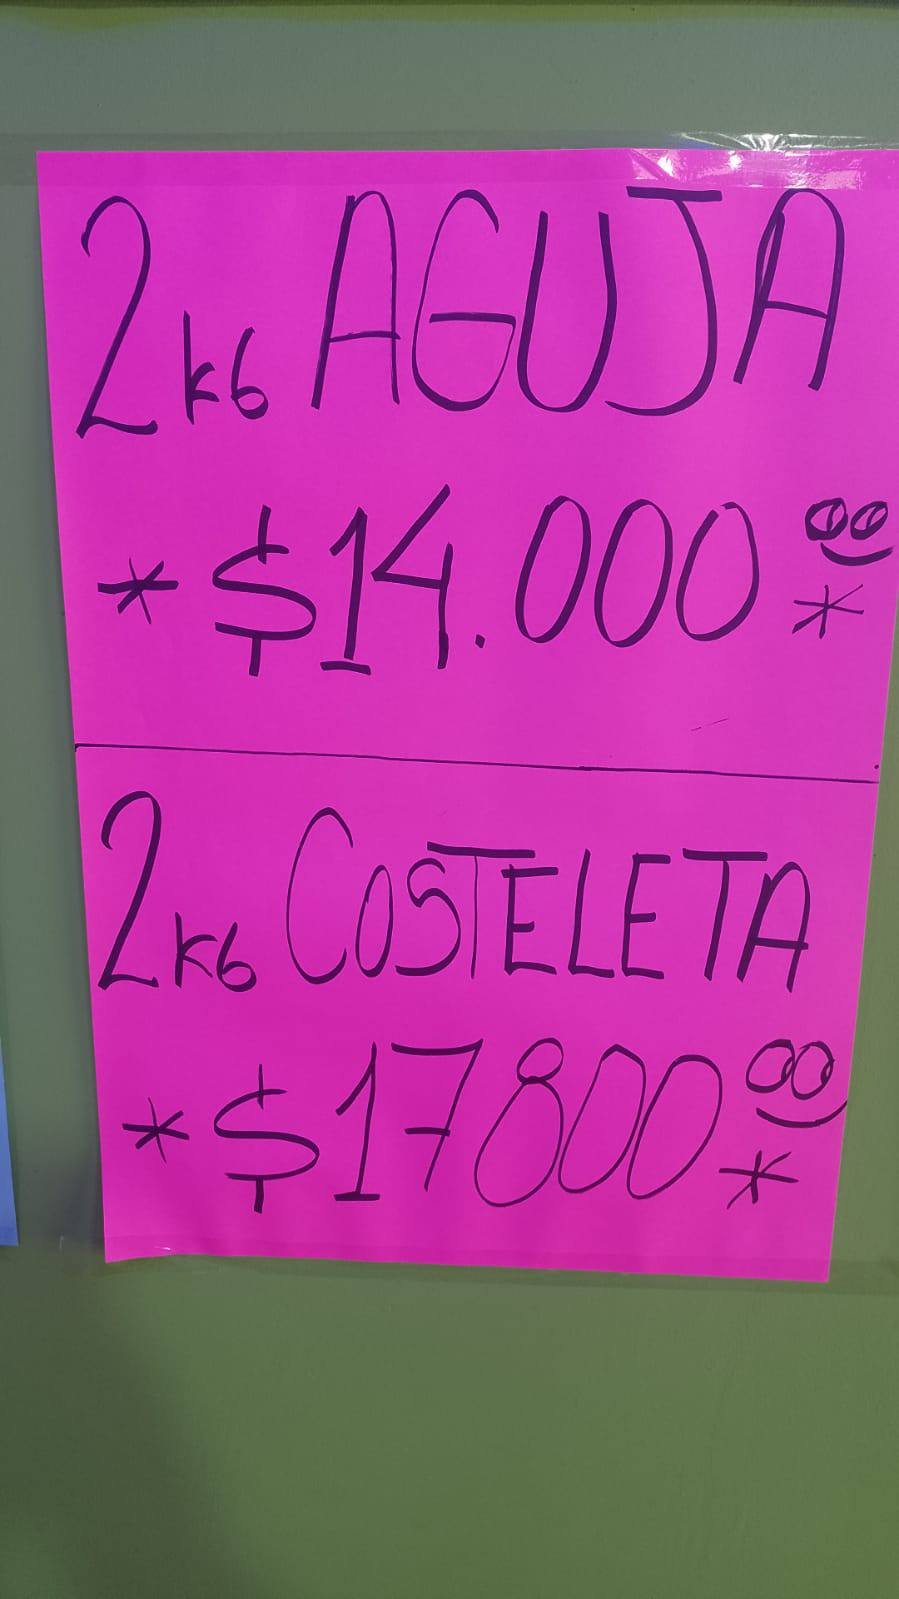 2 KG AGUJA
* $14.000 00 *
2 KG COSTELETA
* $17800 00 *